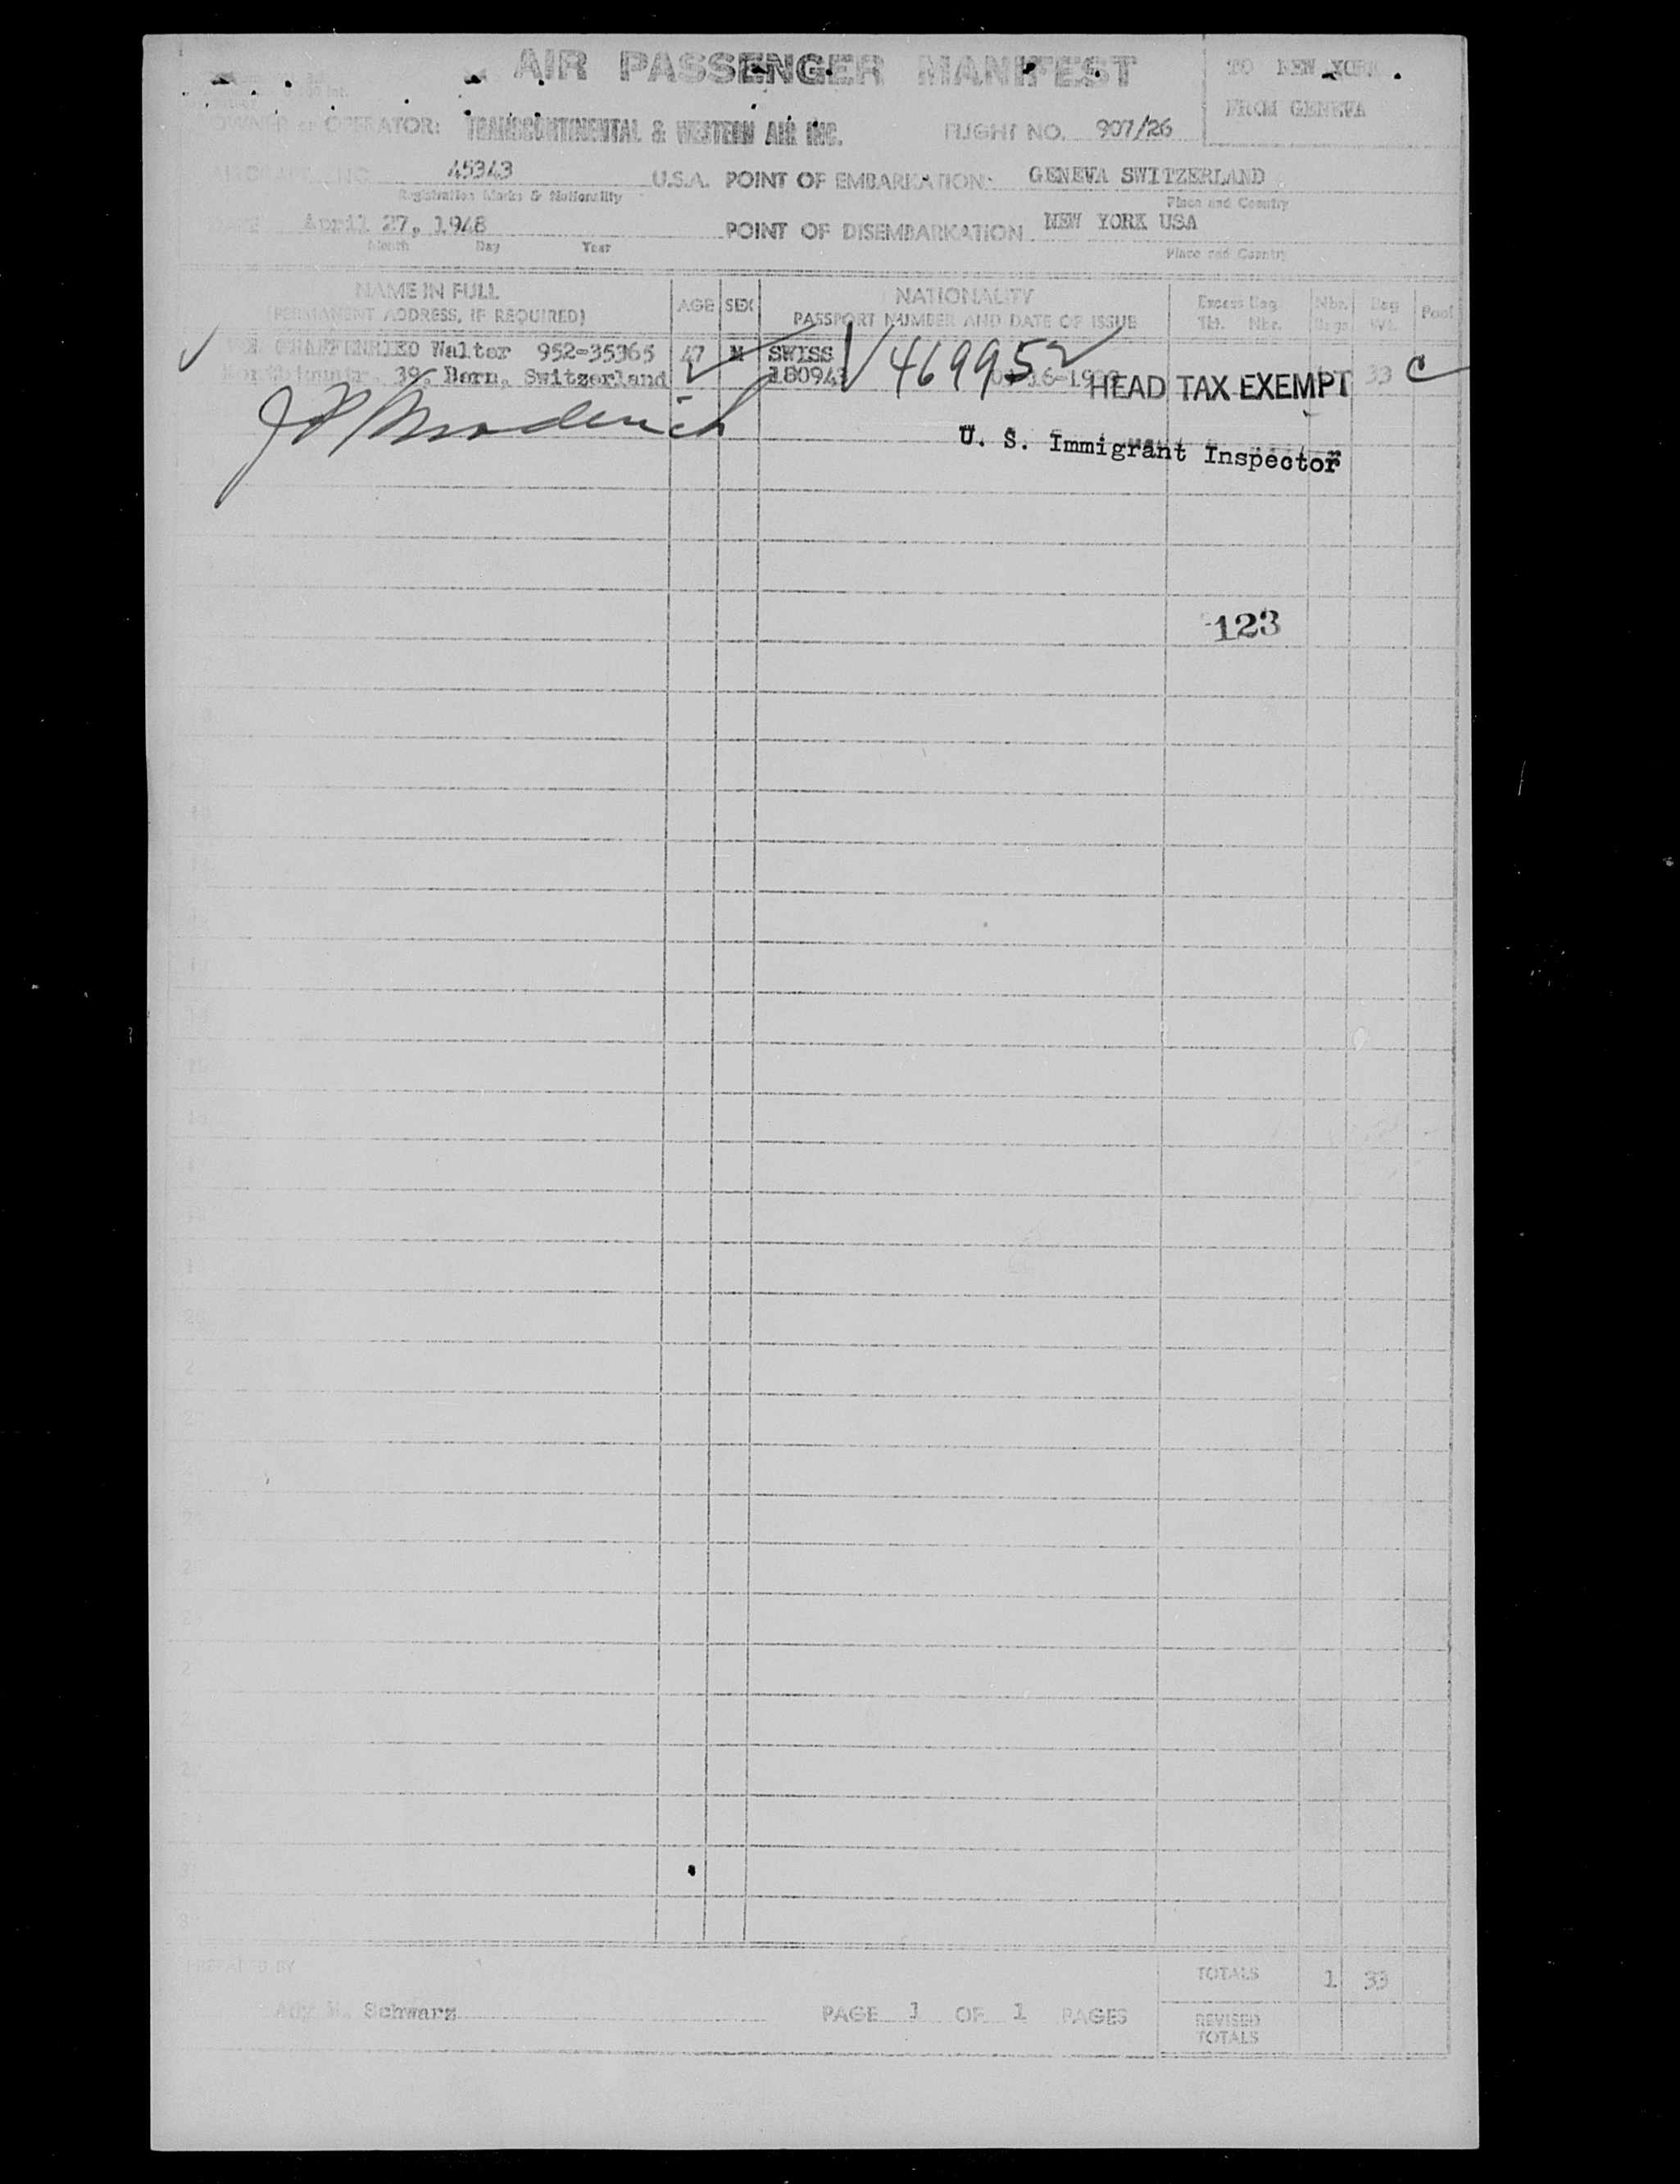 AIR PASSENGER MANIFEST
TO NEW YORK
FROM GENEVA
OWNER or OPERATOR: TRANSCONTINENTAL & WESTERN AIR INC. FLIGHT NO. 907/26
AIRCRAFT NO. 45343 U.S.A. POINT OF EMBARKATION: GENEVA SWITZERLAND
Registration Marks & Nationality Place and Country
DATE April 27, 1948 POINT OF DISEMBARKATION NEW YORK USA
Month Day Year Place and Country
NAME IN FULL AGE SEX NATIONALITY Excess Bag Nbr. Bag Pool
(PERMANENT ADDRESS, IF REQUIRED) PASSPORT NUMBER AND DATE OF ISSUE Tkt. Nbr. Bags Wt.
Walter 952-35365 47 M SWISS V 469952
39, Bern, Switzerland HEAD TAX EXEMPT 33 C
U. S. Immigrant Inspector
123
PREPARED BY TOTALS 1 33
Schwarz PAGE 1 OF 1 PAGES REVISED
TOTALS